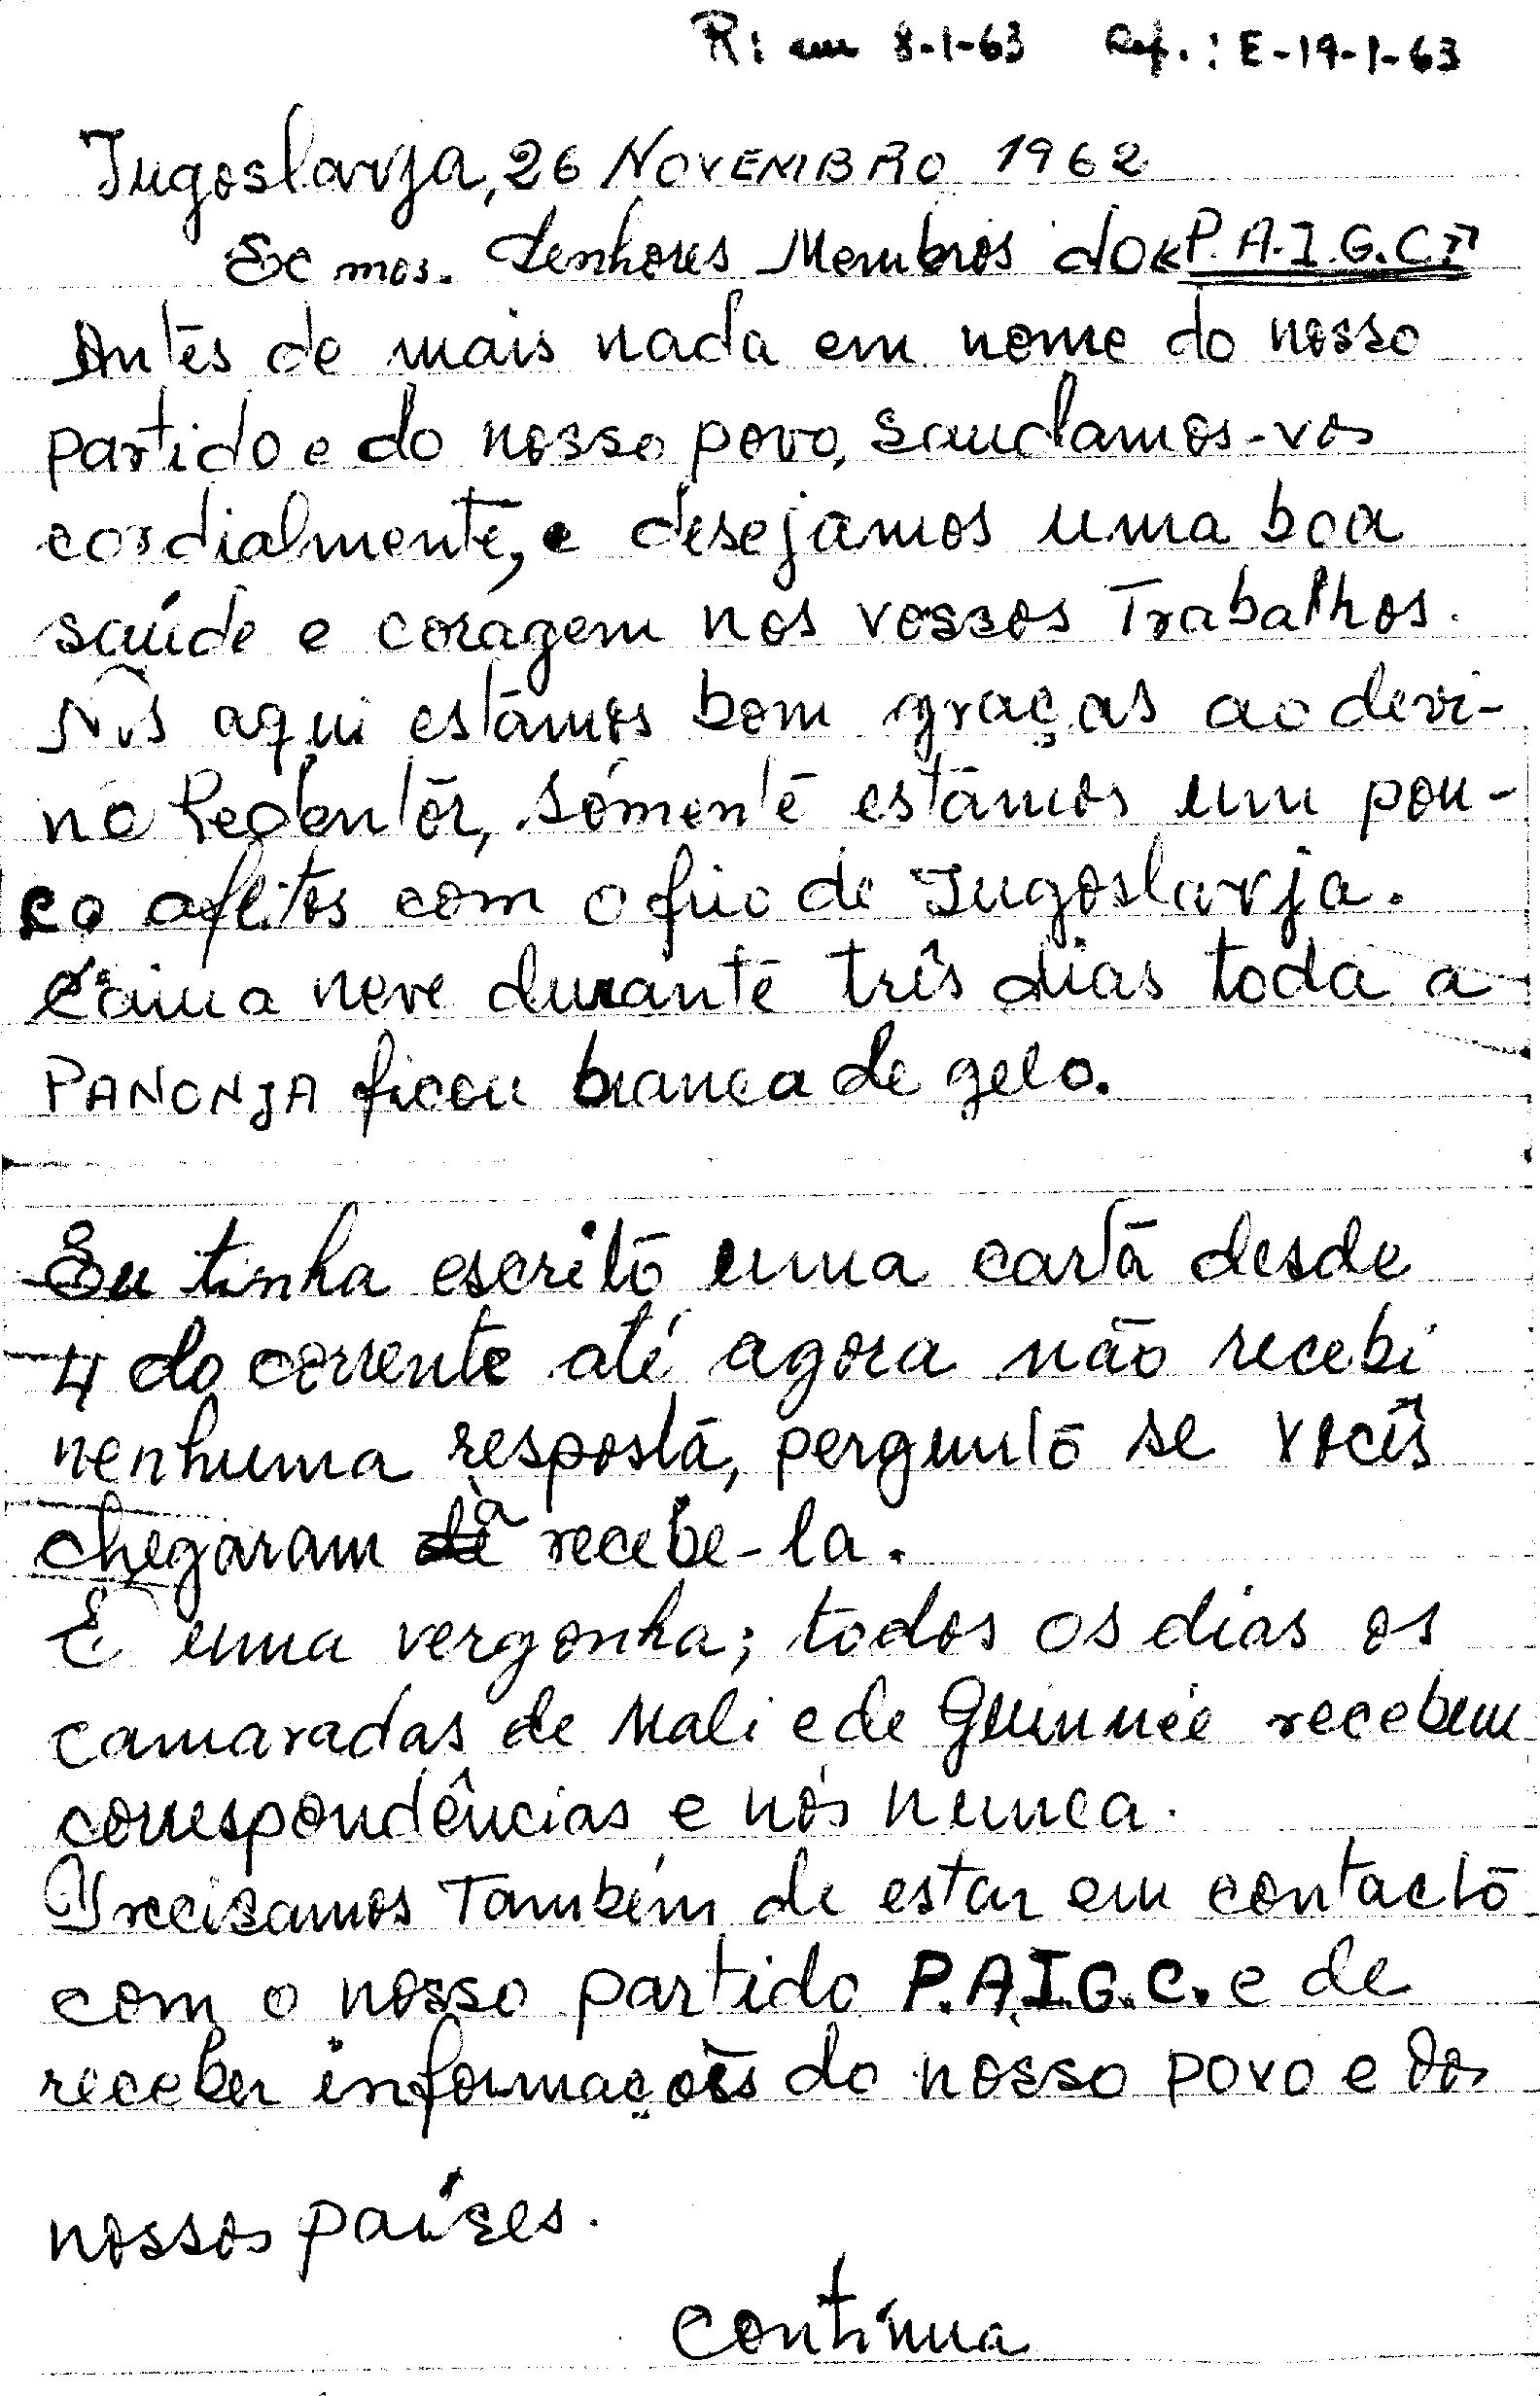 R: em 8-1-63 Ref.: E-19-1-63
Jugoslavja, 26 NOVEMBRO 1962
Exmos. Senhores Membros do «P.A.I.G.C.»
Antes de mais nada em nome do nosso
partido e do nosso povo, saudamos-vos
cordialmente, e desejamos uma boa
saúde e coragem nos vossos Trabalhos.
Nós aqui estamos bom graças ao devi-
no Redentor, sómente estamos um pou-
co aflitos com o frio de Jugoslavja.
Caiu a neve durante três dias toda a
PANONJA ficou branca de gelo.
Eu tinha escrito uma carta desde
4 do corrente até agora não recebi
nenhuma resposta, pergunto se vocês
chegaram à recebe-la.
É uma vergonha; todos os dias os
camaradas de Mali e de Guinnée recebem
correspondências e nós nunca.
Precisamos Também de estar em contacto
com o nosso partido P.A.I.G.C. e de
receber informações do nosso povo e dos
nossos países.
Continua